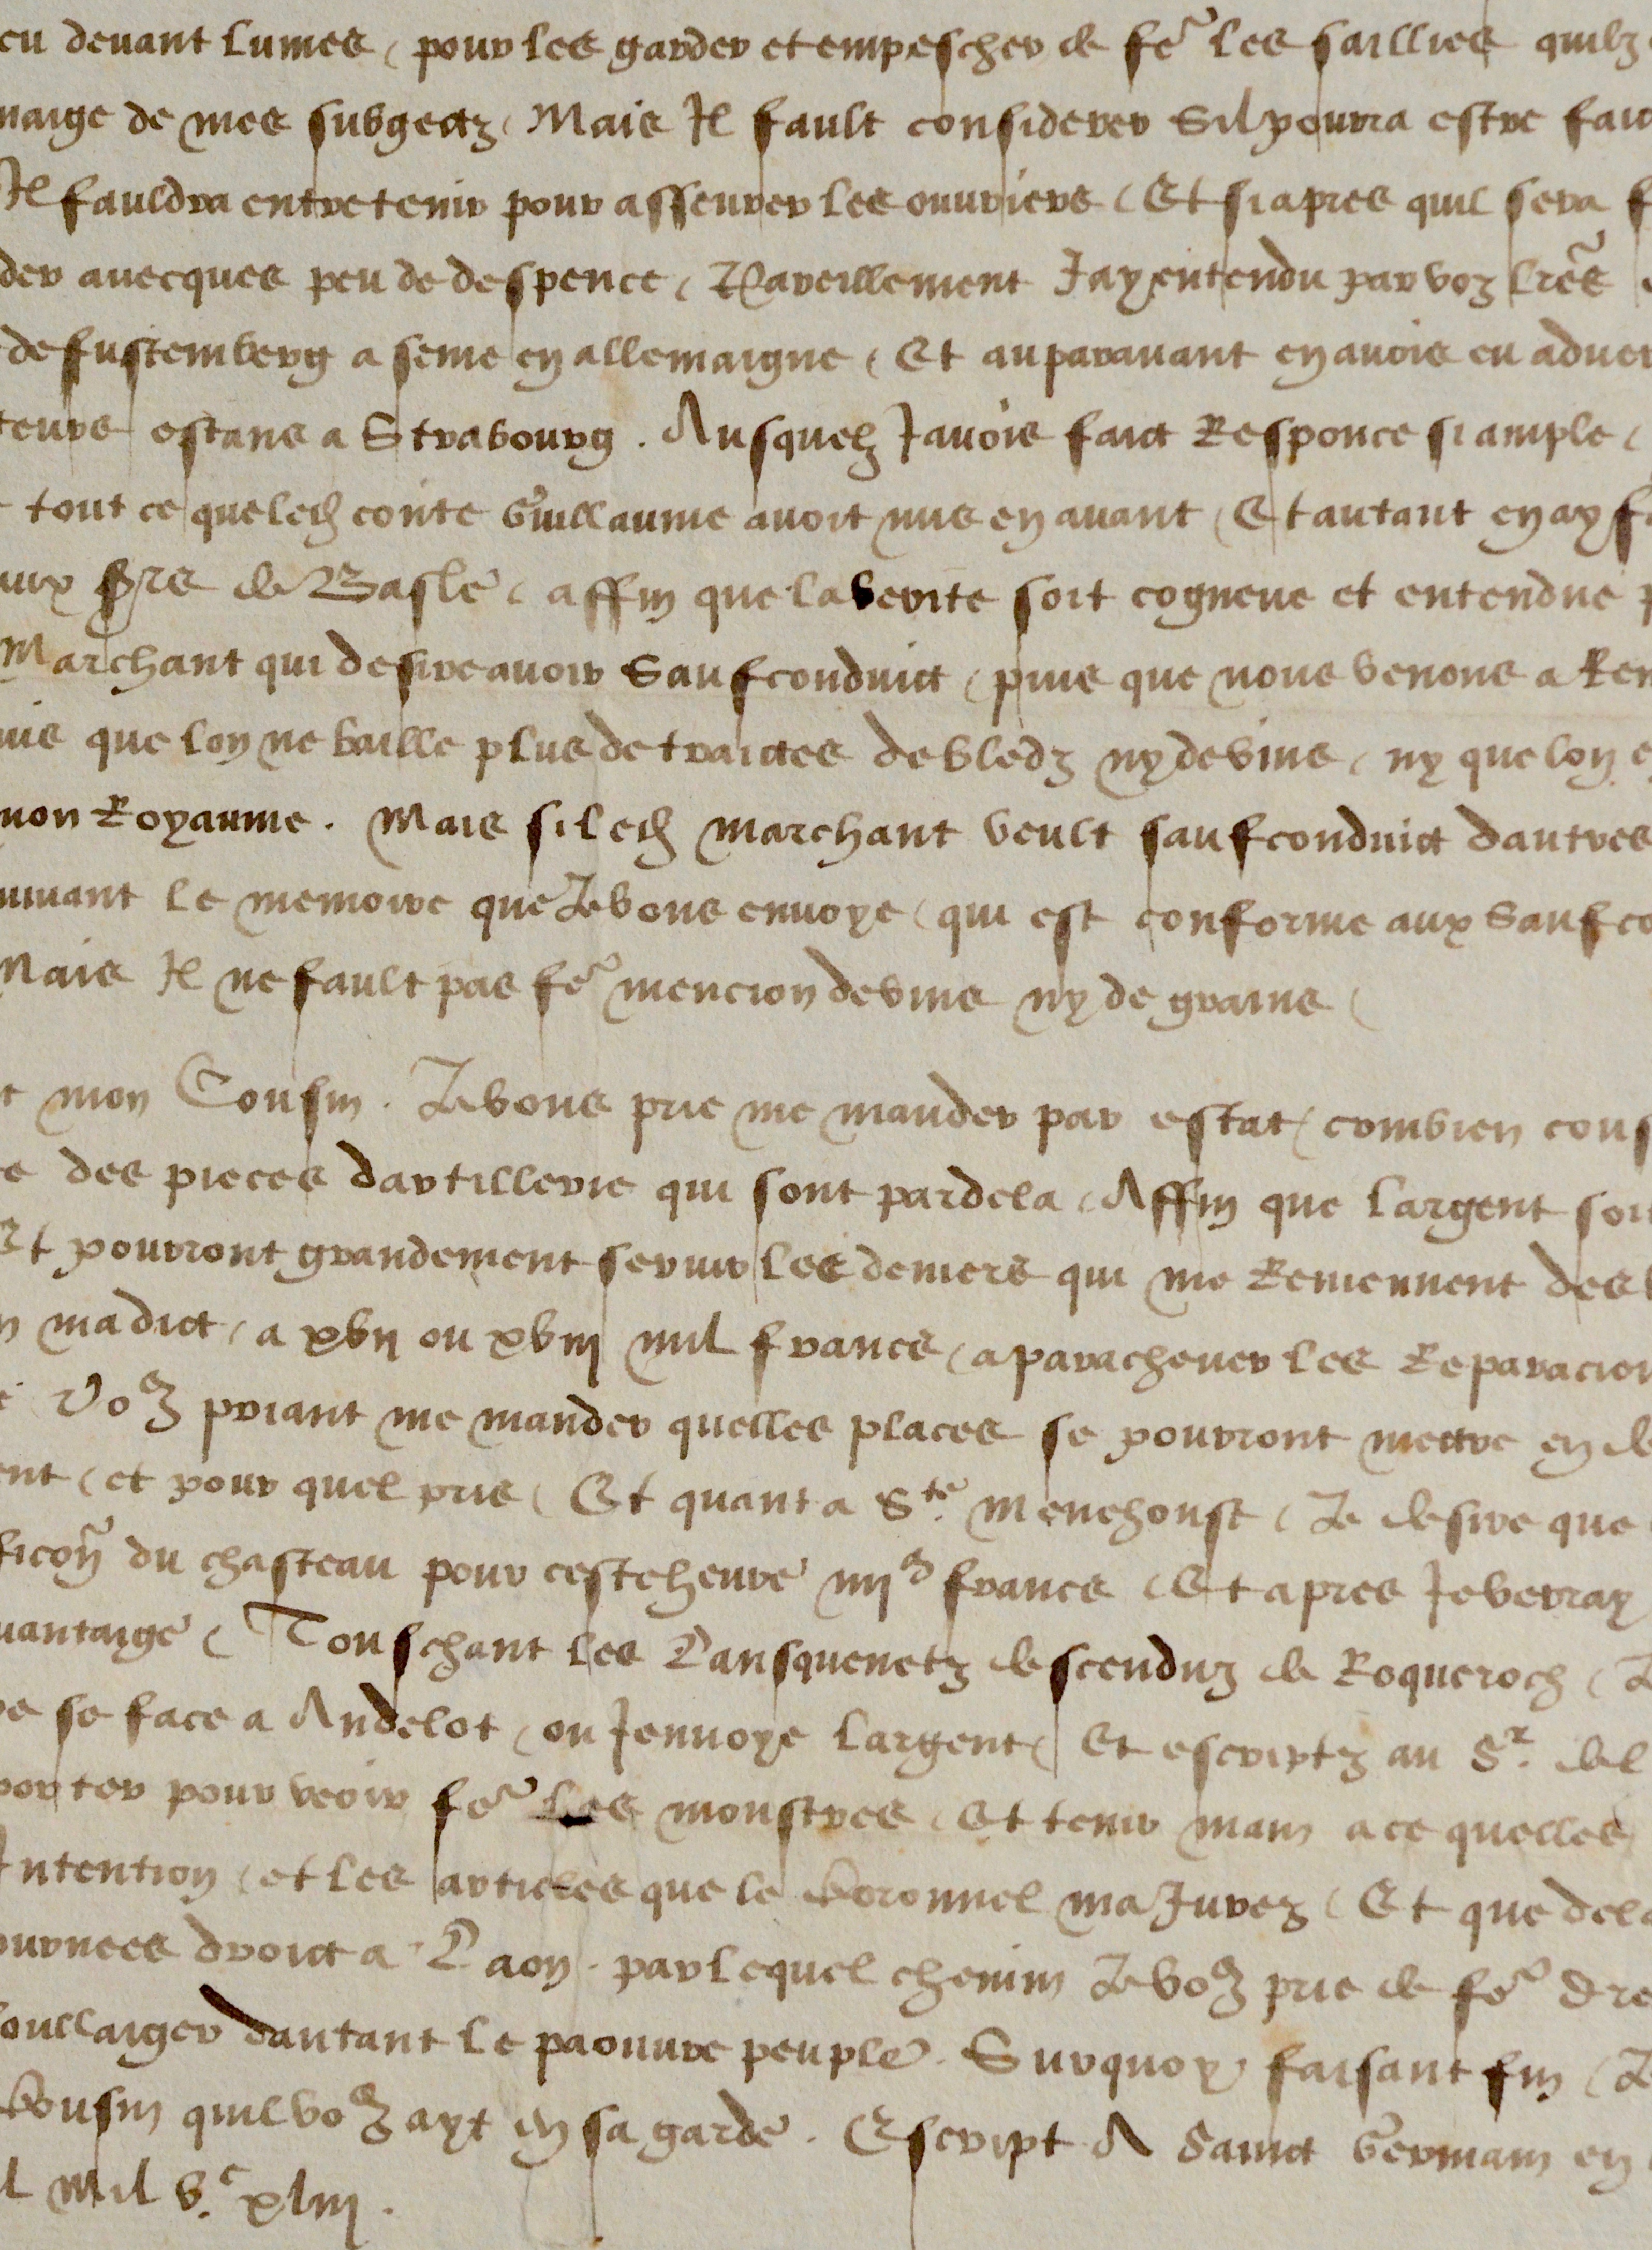 eu devant Lumes, pour les garder et empescher de fe~ les saillies quilz
maige de mes subgectz, Mais Il fault considerer Sil pourra estre faict
Il fauldra entretenir pour asseurer les ouvriers, Et si apres quil sera f
der avecques peu de despence, Pareillement Jay entendu par voz lr~es
de fustemberg a seme en allemaigne, Et auparavant en avois eu adver
teurs estans a Strabourg. Ausquelz Javois faict Responce si ample,
tout ce que led conte Guillaume avoit mis en avant, Et autant en ay fa
aux srs de Basle, affin que la verite soit cogneue et entendue p
Marchant qui desire avoir Saufconduict, puis que nous venons a Ren
uis que lon ne baille plus de traictes de bledz ny de vins, ny que lon e
mon Royaume. Mais si led marchant veult saufconduict dautres
uivant le memoire que Je vous envoye, qui est conforme aux Saufco
Mais Il ne fault pas fe~ mencion de vins ny de grains,
t mon Cousin. Je vous prie me mander par estat, combien cous
e des pieces dartillerie qui sont pardela, Affin que largent soit
Et pourront grandement servir les deniers qui me Reviennent des
n madict, a xvij ou xviij mil francs, a parachever les Reparacion
Vo9 priant me mander quelles places se pourront mettre en de
ent, et pour quel pris, Et quant a Ste. Menehoust, Je desire que
ficon~ du chasteau pour cesteheure iiijc francs, Et apres Je verray
vantaige, Touschant les Lansquenetz descenduz de Roqueroch, Je
re se face a Andelot, ou Jenvoye largent, Et escriptz au Sr. de l
porter pour veoir fe~ les monstres, Et tenir main a ce quelles
Intention, et les articles que le Coronnel ma Jurez, Et que dela
ournees droict a Laon. par lequel chemin Je vo9 prie de fe~ dre
soullaiger dautant le paouvre peuple. Surquoy faisant fin, Je
Cousin quil vo9 ayt en sa garde. Escript A Sainct Germain en
l Mil v.c xliij.